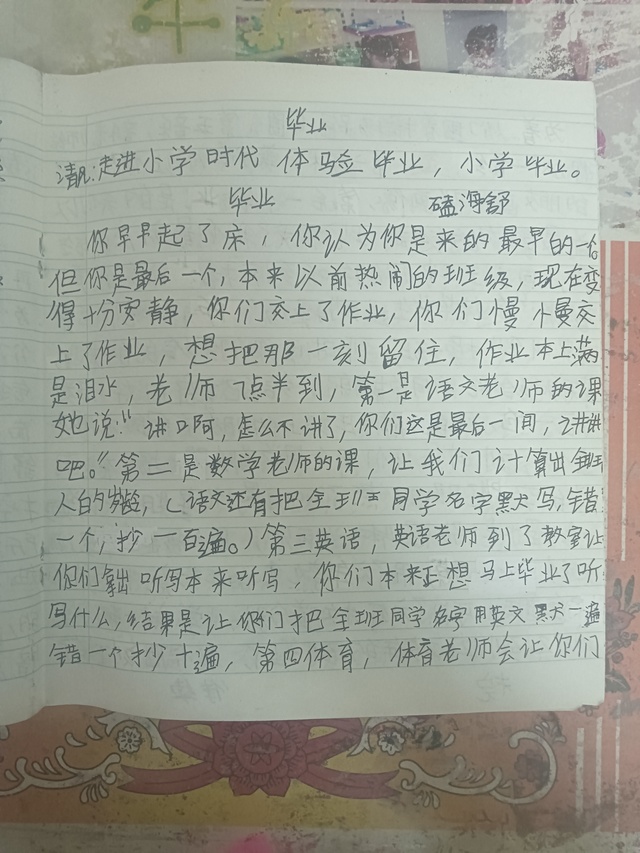 毕业
请走进小学时代 体验毕业，小学毕业。
毕业 海舒
你早早起了床，你认为你是来的最早的一个。
但你是最后一个，本来以前热闹的班级，现在变
得十份安静，你们交上了作业，你们慢慢交
上了作业，想把那一刻留住，作业本上满
是泪水，老师7点半到，第一是语文老师的课
她说："讲啊，怎么不讲了，你们这是最后一间，讲讲
吧。"第二是数学老师的课，让我们计算出全班
人的岁龄，（语文还有把全班同学名字默写，错
一个，抄一百遍。）第三英语，英语老师到了教室让
你们拿出听写本来听写，你们本来正想马上毕业了听
写什么，结果是让你们把全班同学名字用英文默一遍
错一个抄十遍，第四体育，体育老师会让你们